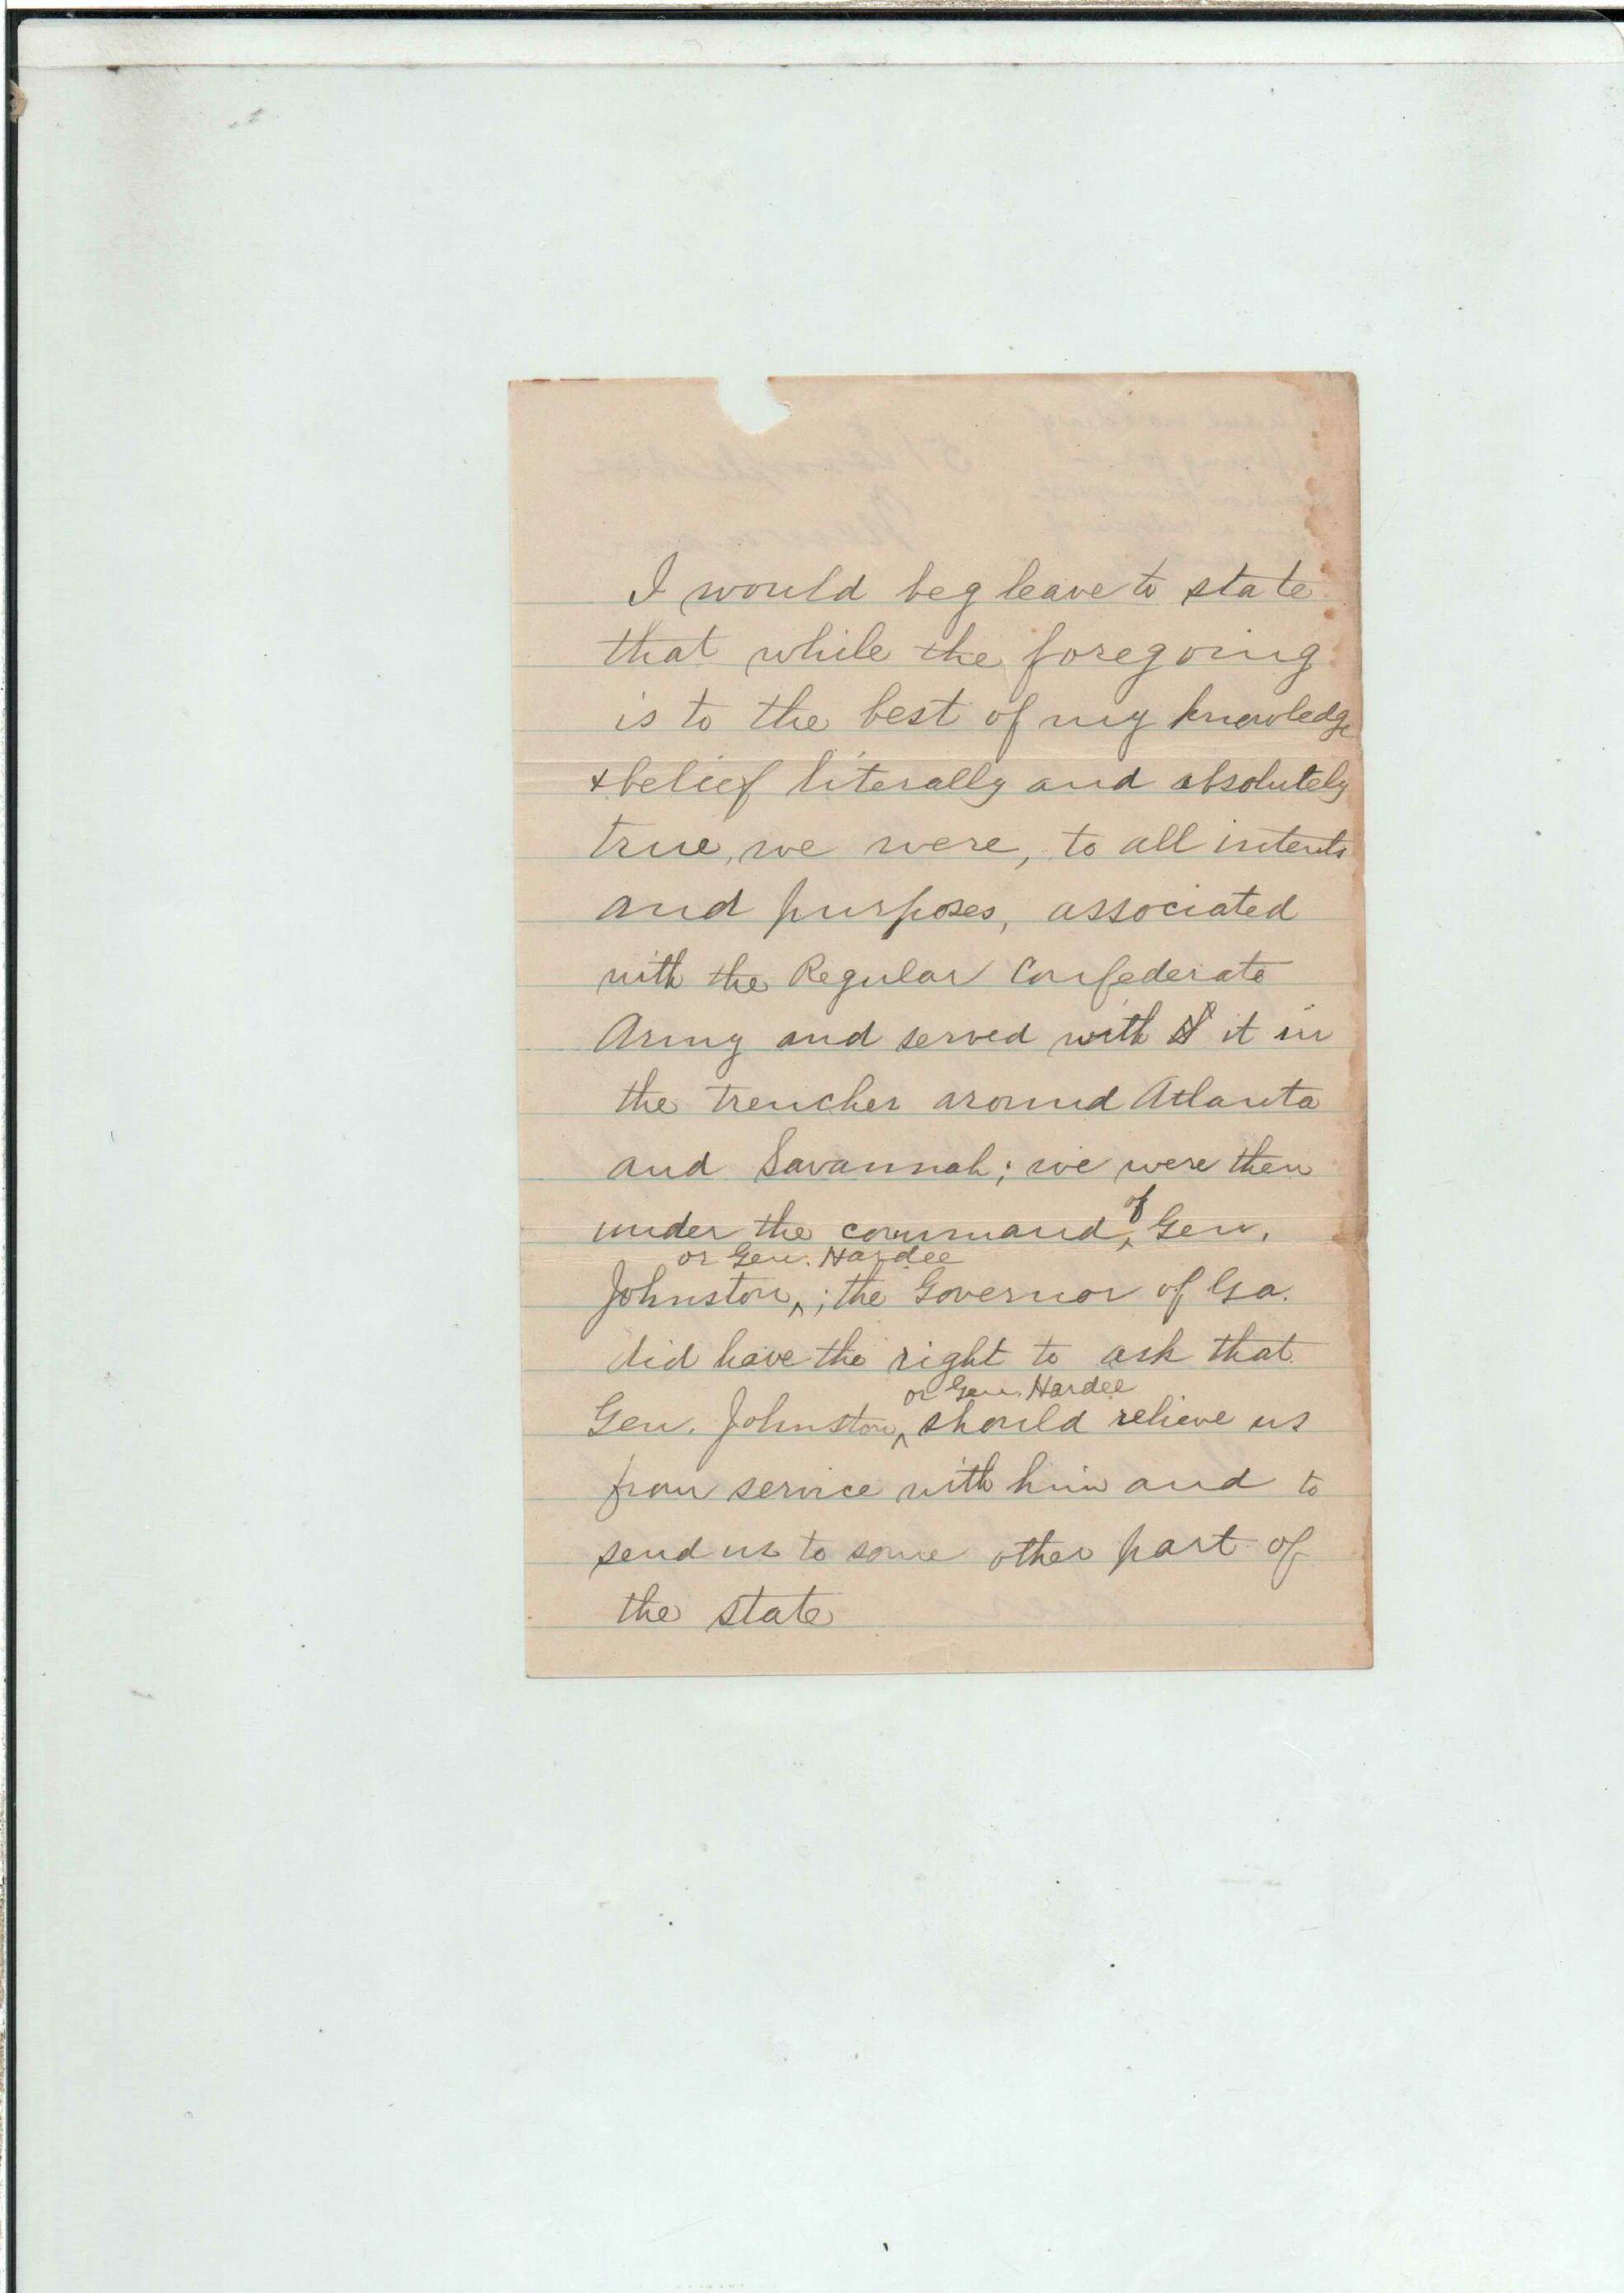 I would beg leave to state
that while the foregoing
is to the best of my knowledge
& belief literally and absolutely
true, we were, to all intents
and purposes, associated
with the Regular Confederate
Army and served with it in
the trenches around Atlanta
and Savannah; we were then
under the command of Gen.
or Gen. Hardee
Johnston, ; the Governor of Ga.
did have the right to ask that
or Gen. Hardee
Gen. Johnston, should relieve us
from service with him and to
send us to some other part of
the state